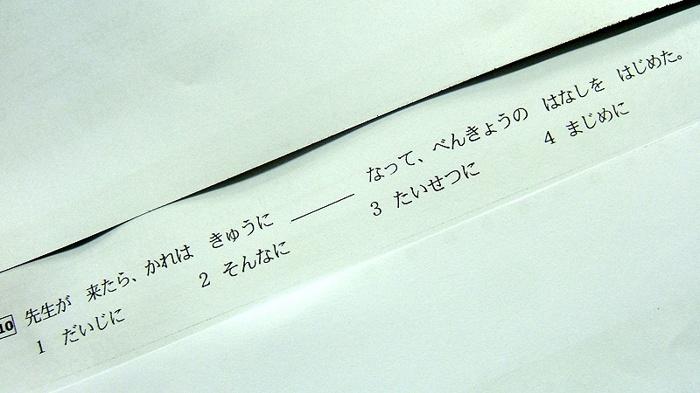 10 先生が 来たら、かれは きゅうに ――― なって、べんきょうの はなしを はじめた。
1 だいじに 2 そんなに 3 たいせつに 4 まじめに